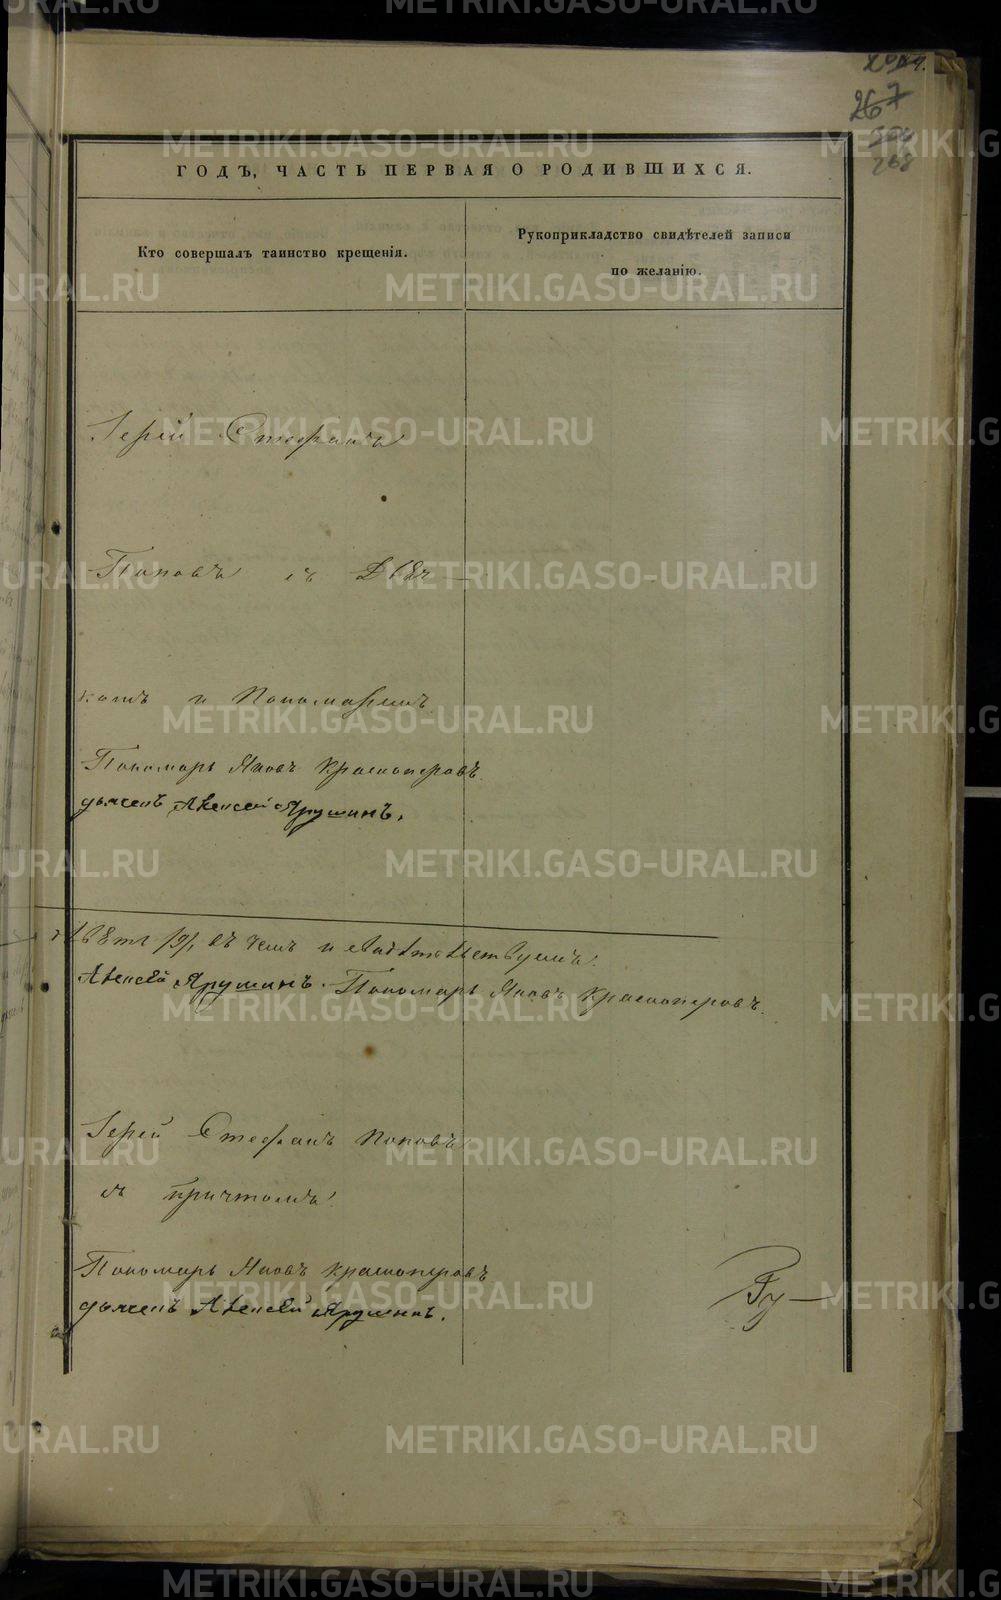 267
268
ГОДЪ, ЧАСТЬ ПЕРВАЯ О РОДИВШИХСЯ.
Кто совершалъ таинство крещенія.
Рукоприкладство свидѣтелей записи
по желанію.
Іерей Стефанъ
Поповъ съ Дья-
комъ и Пономаремъ
Пономарь Яковъ Красноперовъ
дьячекъ Алексей Ярушинъ.
въ чемъ и свидѣтельствуемъ
Алексей Ярушинъ. Пономарь Яковъ Красноперовъ.
Іерей Стефанъ Поповъ
съ причтомъ
Пономарь Яковъ Красноперовъ
дьячекъ Алексей Ярушинъ.
METRIKI.GASO-URAL.RU